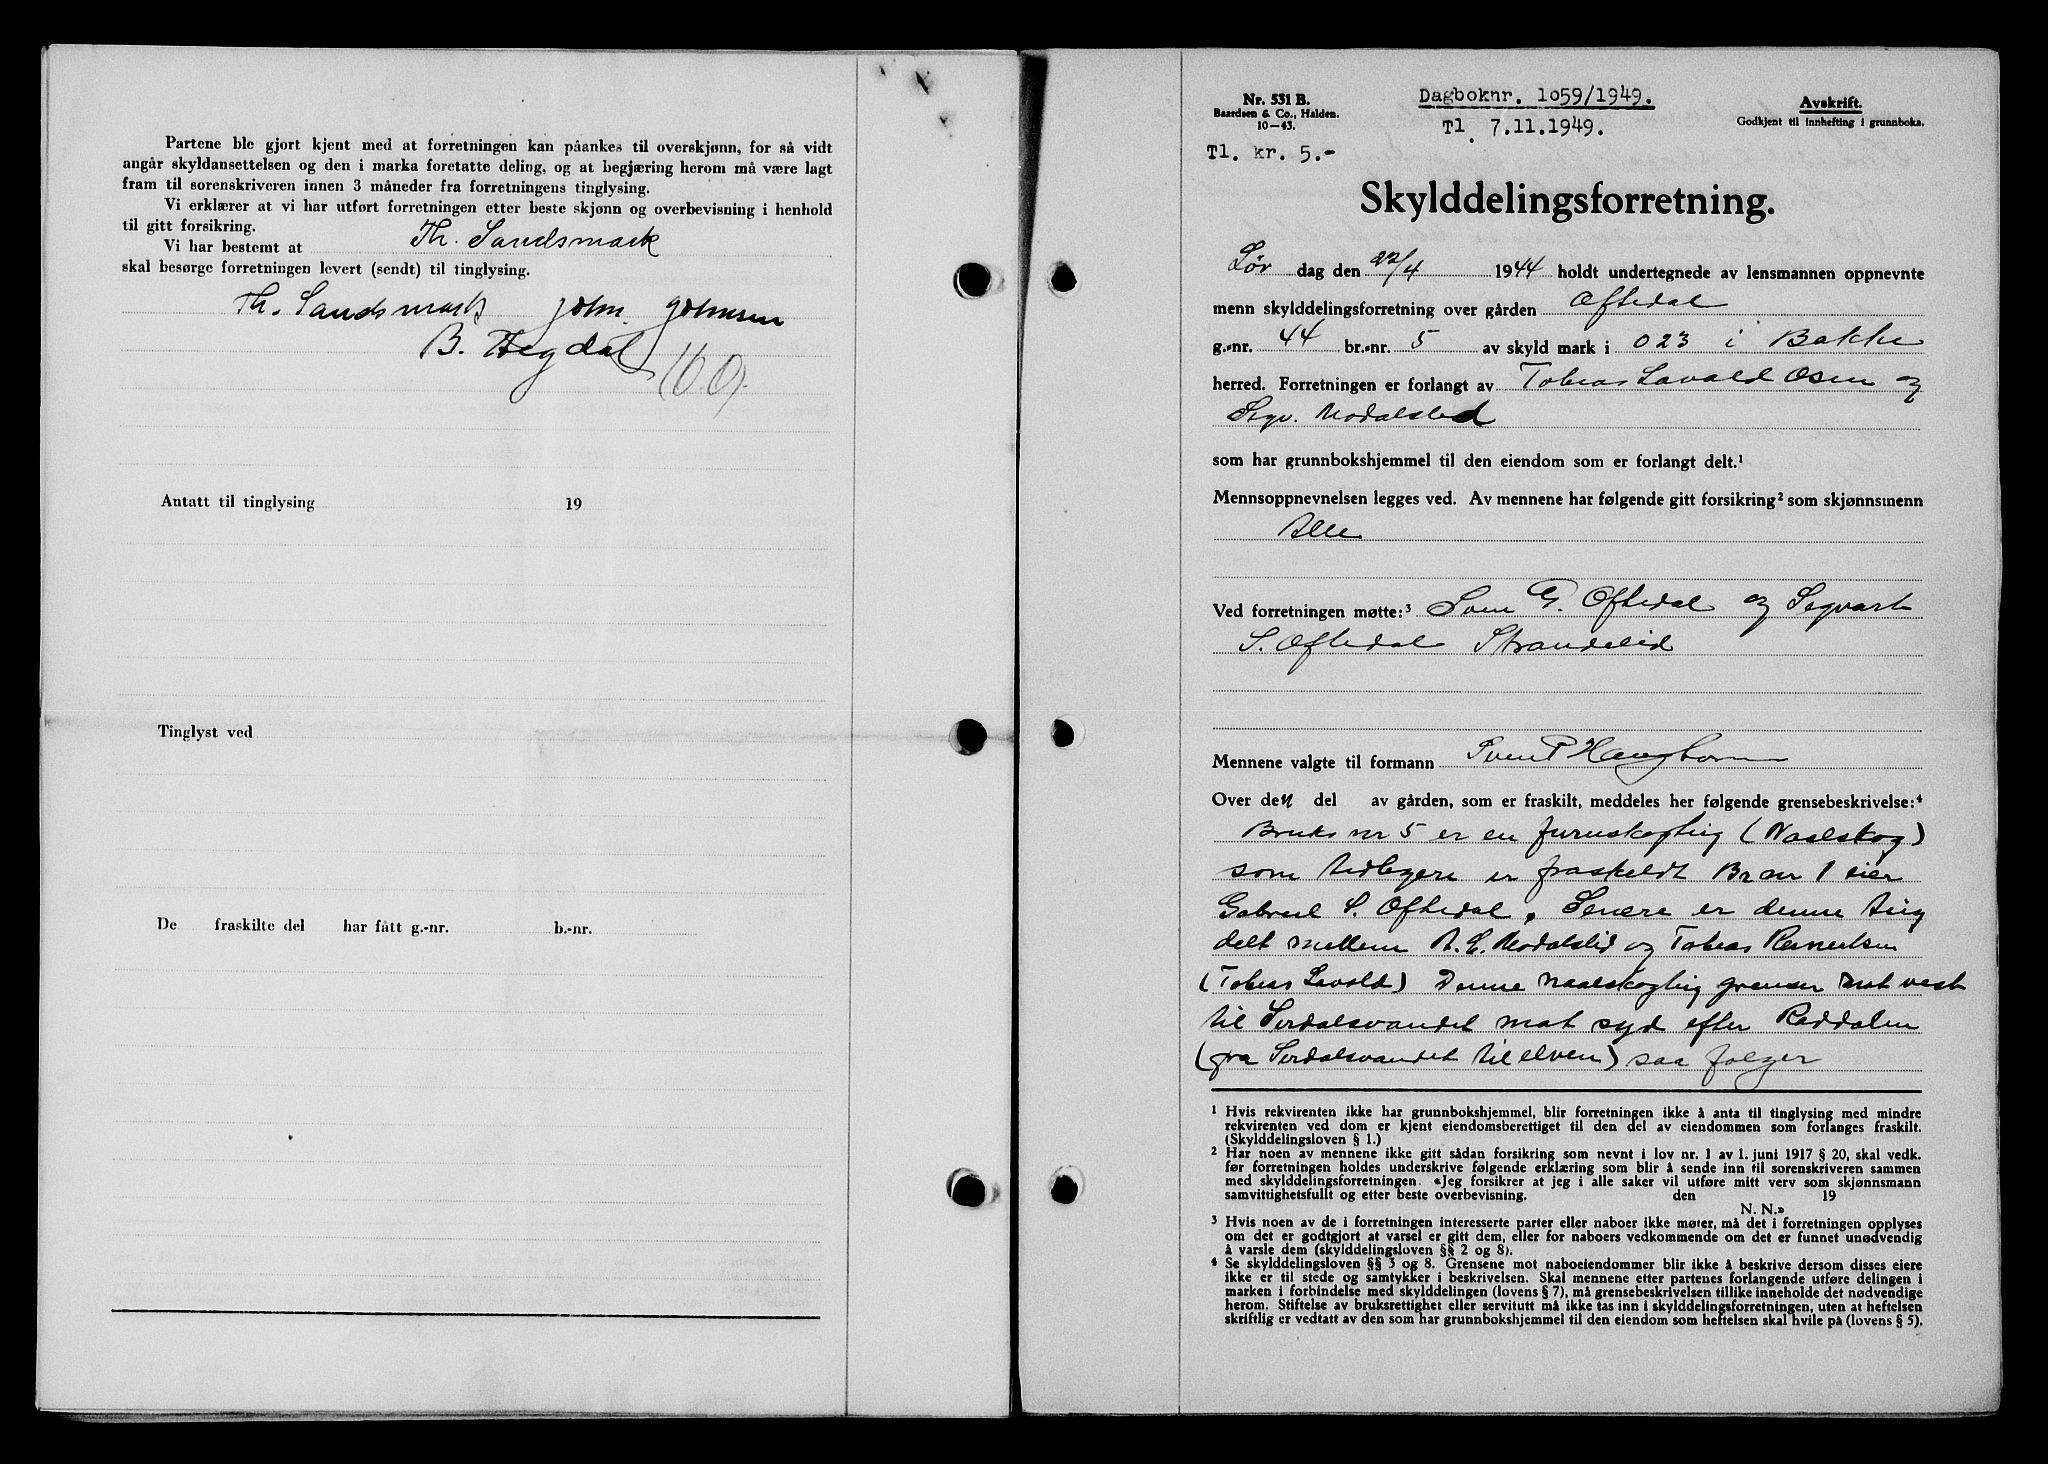 Partene ble gjort kjent med at forretningen kan påankes til overskjønn, for så vidt
angår skyldansettelsen og den i marka foretatte deling, og at begjæring herom må være lagt
fram til sorenskriveren innen 3 måneder fra forretningens tinglysing.
Vi erklærer at vi har utført forretningen etter beste skjønn og overbevisning i henhold
til gitt forsikring.
Vi har bestemt at Th. Sandsmark
skal besørge forretningen levert (sendt) til tinglysing.
Th. Sandsmark John Johnsen
B. Hegdal
Antatt til tinglysing 19
Tinglyst ved
De fraskilte del har fått g.-nr. b.-nr.
Nr. 531 B.
Baardsen & Co., Halden.
10-43.
Dagboknr. 1o59/1949.
Tl. 7.11.1949.
Tl. kr. 5.-
Avskrift.
Godkjent til innhefting i grunnboka.
Skylddelingsforretning.
Lør dag den 22/4 1944 holdt undertegnede av lensmannen oppnevnte
menn skylddelingsforretning over gården Oftedal
g.-nr. 44 br.-nr. 5 av skyld mark i 023 i Bakke
herred. Forretningen er forlangt av Tobias Lavold Osen og
Segv. Modalsled
som har grunnbokshjemmel til den eiendom som er forlangt delt.¹
Mennsoppnevnelsen legges ved. Av mennene har følgende gitt forsikring² som skjønnsmenn
Alle
Ved forretningen møtte:³ Sven G. Oftedal og Segvart
S. Oftedal Strandelid
Mennene valgte til formann Sven
Over den del av gården, som er fraskilt, meddeles her følgende grensebeskrivelse:⁴
Bruks nr 5 er en furuskogteig (Naaleskog)
som tidlegere er fraskeldt Br nr 1 eier
Gabriel S. Oftedal, Senere er denne teig
delt mellem A. E. Modalslid og Tobias Reinertsen
(Tobias Lavold) Denne naaleskogteig grenser mot vest
til Serdalsvandet mot syd efter Raddalen
(fra Serdalsvandet til elven) saa følger
1 Hvis rekvirenten ikke har grunnbokshjemmel, blir forretningen ikke å anta til tinglysing med mindre
rekvirenten ved dom er kjent eiendomsberettiget til den del av eiendommen som forlanges fraskilt.
(Skylddelingsloven § 1.)
2 Har noen av mennene ikke gitt sådan forsikring som nevnt i lov nr. 1 av 1. juni 1917 § 20, skal vedk.
før forretningen holdes underskrive følgende erklæring som blir å sende inn til sorenskriveren sammen
med skylddelingsforretningen. «Jeg forsikrer at jeg i alle saker vil utføre mitt verv som skjønnsmann
samvittighetsfullt og etter beste overbevisning. den 19
N. N.»
3 Hvis noen av de i forretningen interesserte parter eller naboer ikke møter, må det i forretningen opplyses
om det er godtgjort at varsel er gitt dem, eller for naboers vedkommende om det er funnet unødvendig
å varsle dem (skylddelingsloven §§ 2 og 8).
4 Se skylddelingsloven §§ 3 og 8. Grensene mot naboeiendommer blir ikke å beskrive dersom disses eiere
ikke er til stede og samtykker i beskrivelsen. Skal mennene etter partenes forlangende utføre delingen i
marken i forbindelse med skylddelingen (lovens § 7), må grensebeskrivelsen tillike inneholde det nødvendige
herom. Stiftelse av bruksrettighet eller servitutt må ikke tas inn i skylddelingsforretningen, uten at heftelsen
skriftlig er vedtatt av den som har grunnbokshjemmel til den eiendom som heftelsen skal hvile på (lovens § 5).